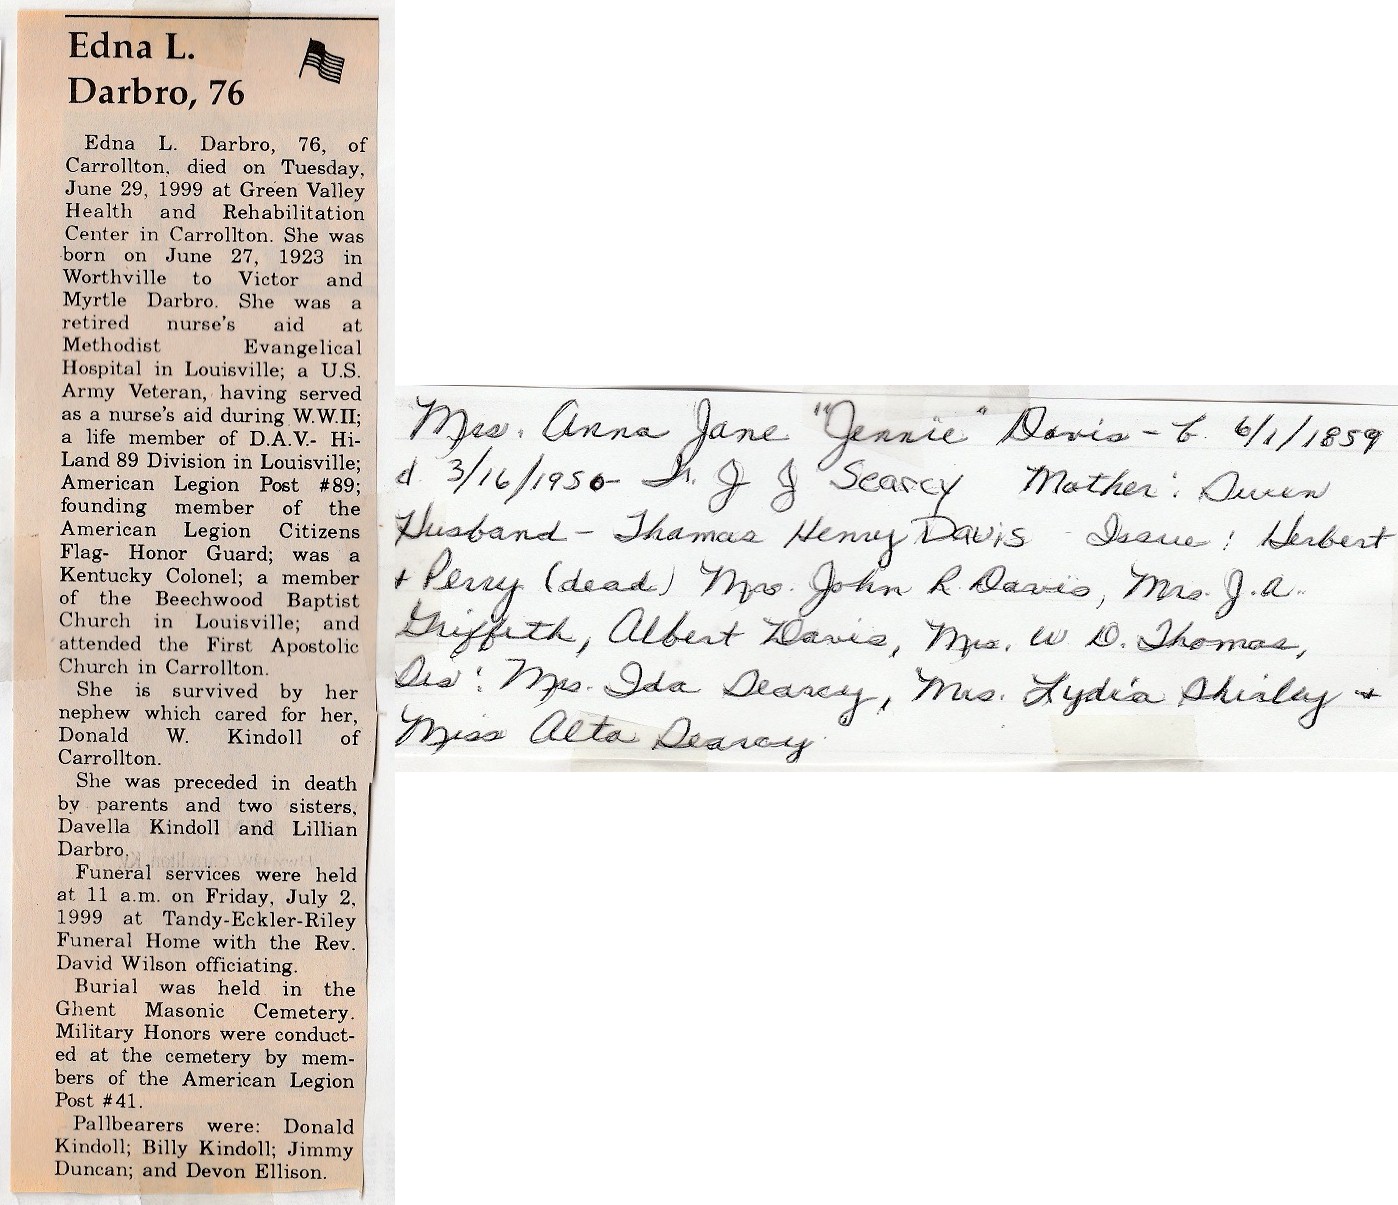 Edna L.
Darbro, 76
Edna L. Darbro, 76, of
Carrollton, died on Tuesday,
June 29, 1999 at Green Valley
Health and Rehabilitation
Center in Carrollton. She was
born on June 27, 1923 in
Worthville to Victor and
Myrtle Darbro. She was a
retired nurse's aid at
Methodist Evangelical
Hospital in Louisville; a U.S.
Army Veteran, having served
as a nurse's aid during W.W.II;
a life member of D.A.V.- Hi-
Land 89 Division in Louisville;
American Legion Post #89;
founding member of the
American Legion Citizens
Flag- Honor Guard; was a
Kentucky Colonel; a member
of the Beechwood Baptist
Church in Louisville; and
attended the First Apostolic
Church in Carrollton.
She is survived by her
nephew which cared for her,
Donald W. Kindoll of
Carrollton.
She was preceded in death
by parents and two sisters,
Davella Kindoll and Lillian
Darbro.
Funeral services were held
at 11 a.m. on Friday, July 2,
1999 at Tandy-Eckler-Riley
Funeral Home with the Rev.
David Wilson officiating.
Burial was held in the
Ghent Masonic Cemetery.
Military Honors were conduct-
ed at the cemetery by mem-
bers of the American Legion
Post #41.
Pallbearers were: Donald
Kindoll; Billy Kindoll; Jimmy
Duncan; and Devon Ellison.
Mrs. Anna Jane "Jennie" Davis - b. 6/1/1859
d. 3/16/1950 - J J Searcy Mother: Owen
Husband - Thomas Henry Davis - Issue: Herbert
+ Perry (dead) Mrs. John R. Davis, Mrs. J.A.
Griffith, Albert Davis, Mrs. W D. Thomas,
Sis: Mrs. Ida Searcy, Mrs. Lydia Shirley +
Miss Alta Searcy